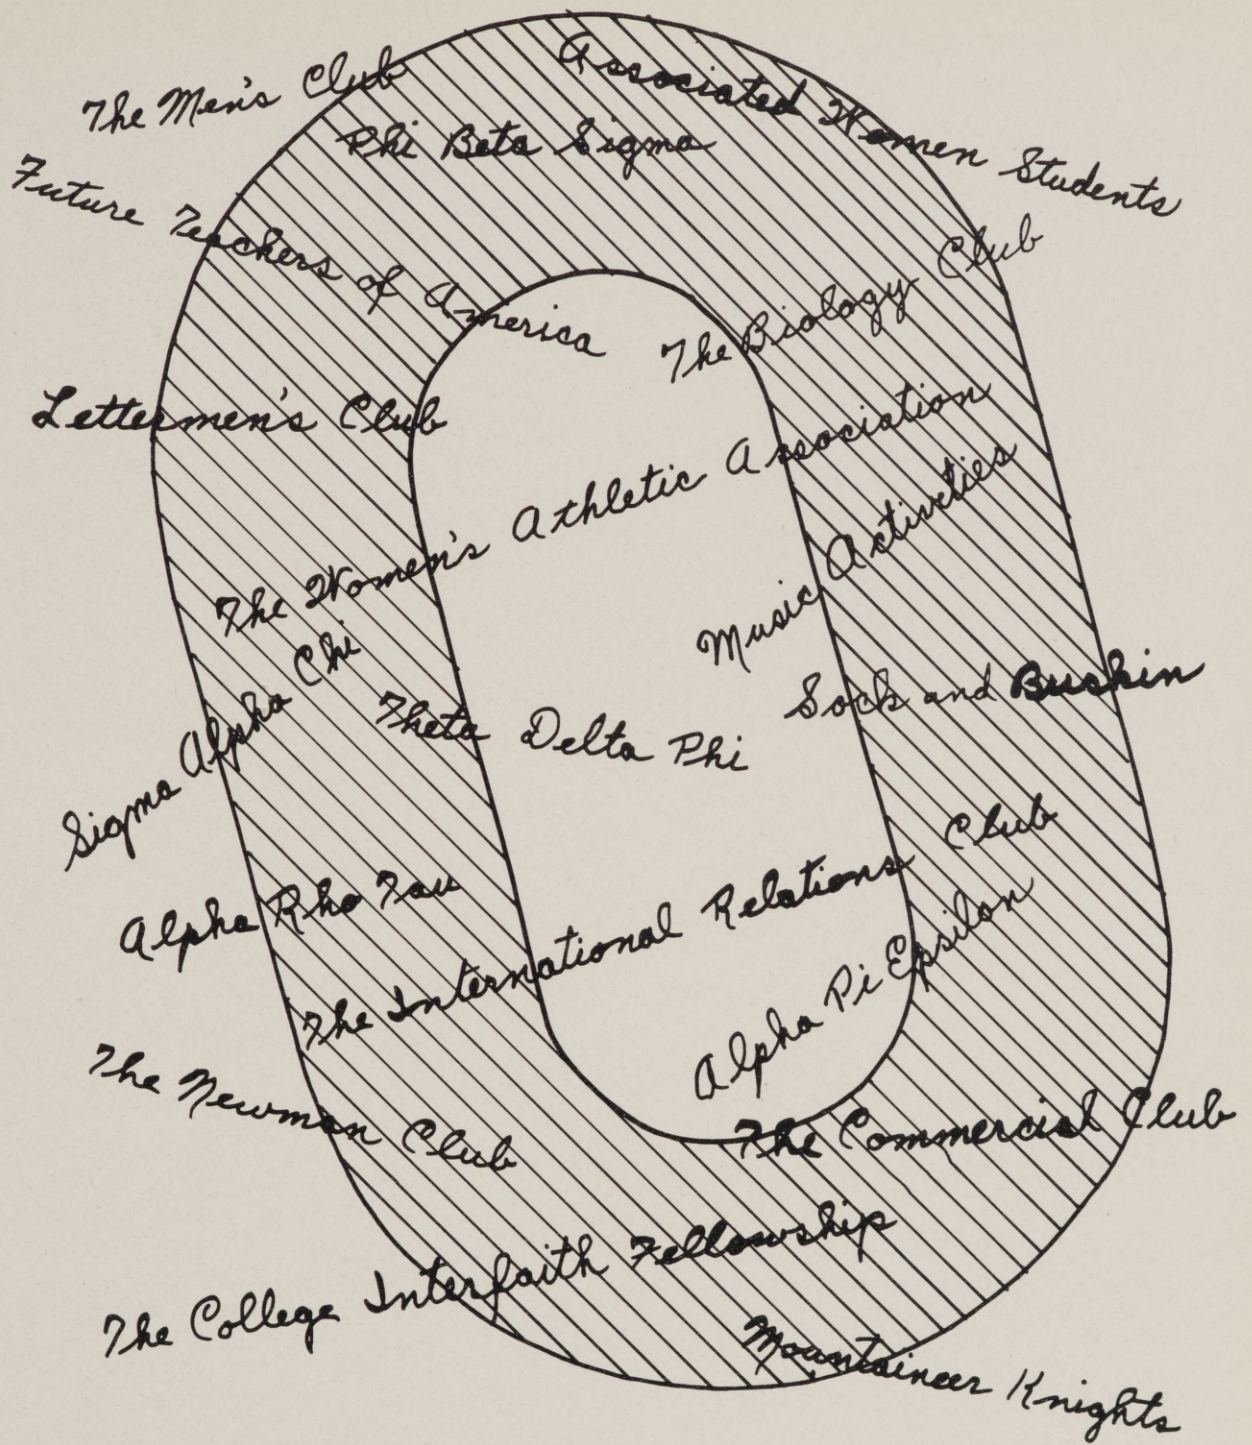 The Men's Club
Associated Women Students
Phi Beta Sigma
Future Teachers of America
The Biology Club
Lettermen's Club
The Women's Athletic Association
Music Activities
Sigma Alpha Chi
Theta Delta Phi
Sock and Buskin
Alpha Rho Tau
The International Relations Club
Alpha Pi Epsilon
The Newman Club
The Commercial Club
The College Interfaith Fellowship
Mountaineer Knights